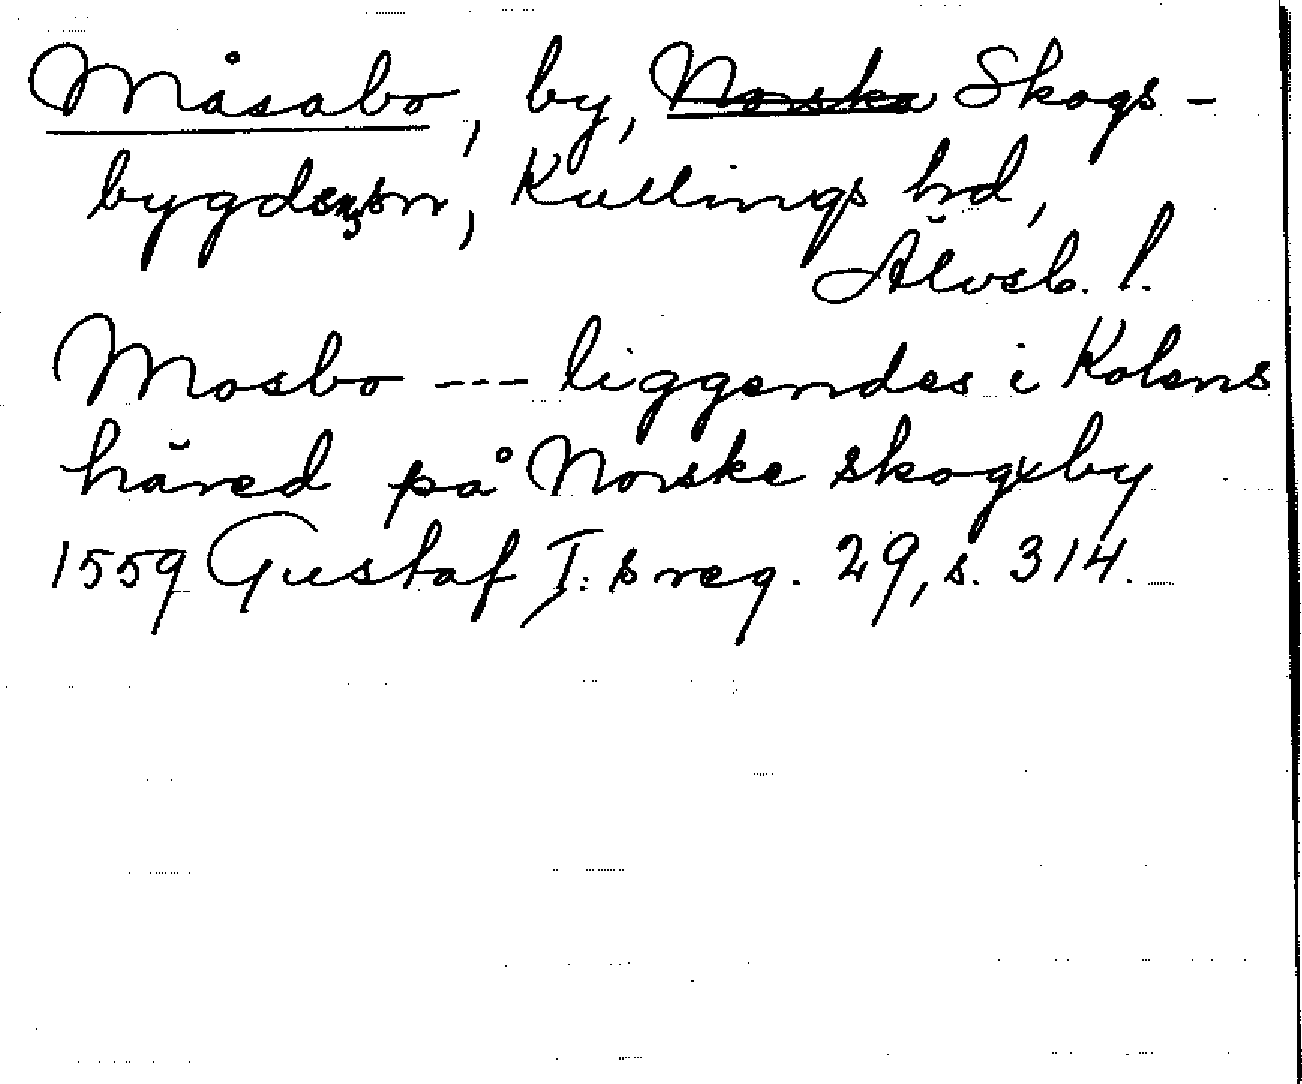 Måsabo, by, Norska Skogs-
bygdens sn, Kullings hd,
Älvsb. l.
Mosbo --- liggendes i Kolens
häred på Norske skogxby
1559 Gustaf I:s reg. 29, s. 314.